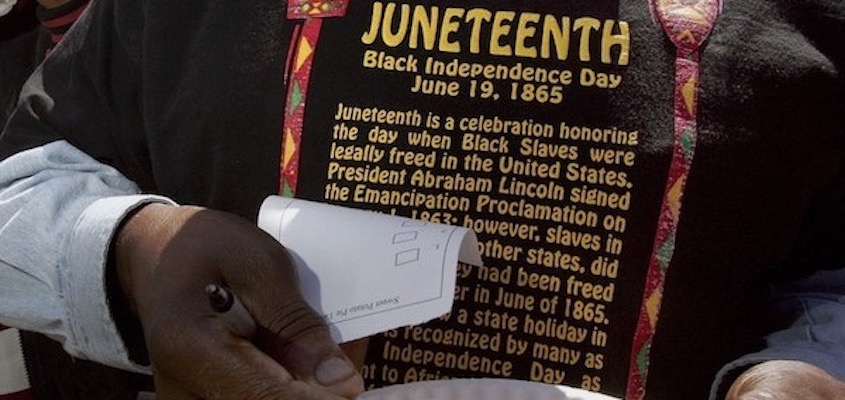 JUNETEENTH
Black Independence Day
June 19, 1865
Juneteenth is a celebration honoring
the day when Black Slaves were
legally freed in the United States.
President Abraham Lincoln signed
the Emancipation Proclamation on
1863; however, slaves in
other states, did
had been freed
in June of 1865.
a state holiday in
recognized by many as
Independence Day as
to
Sweet Potato Pie